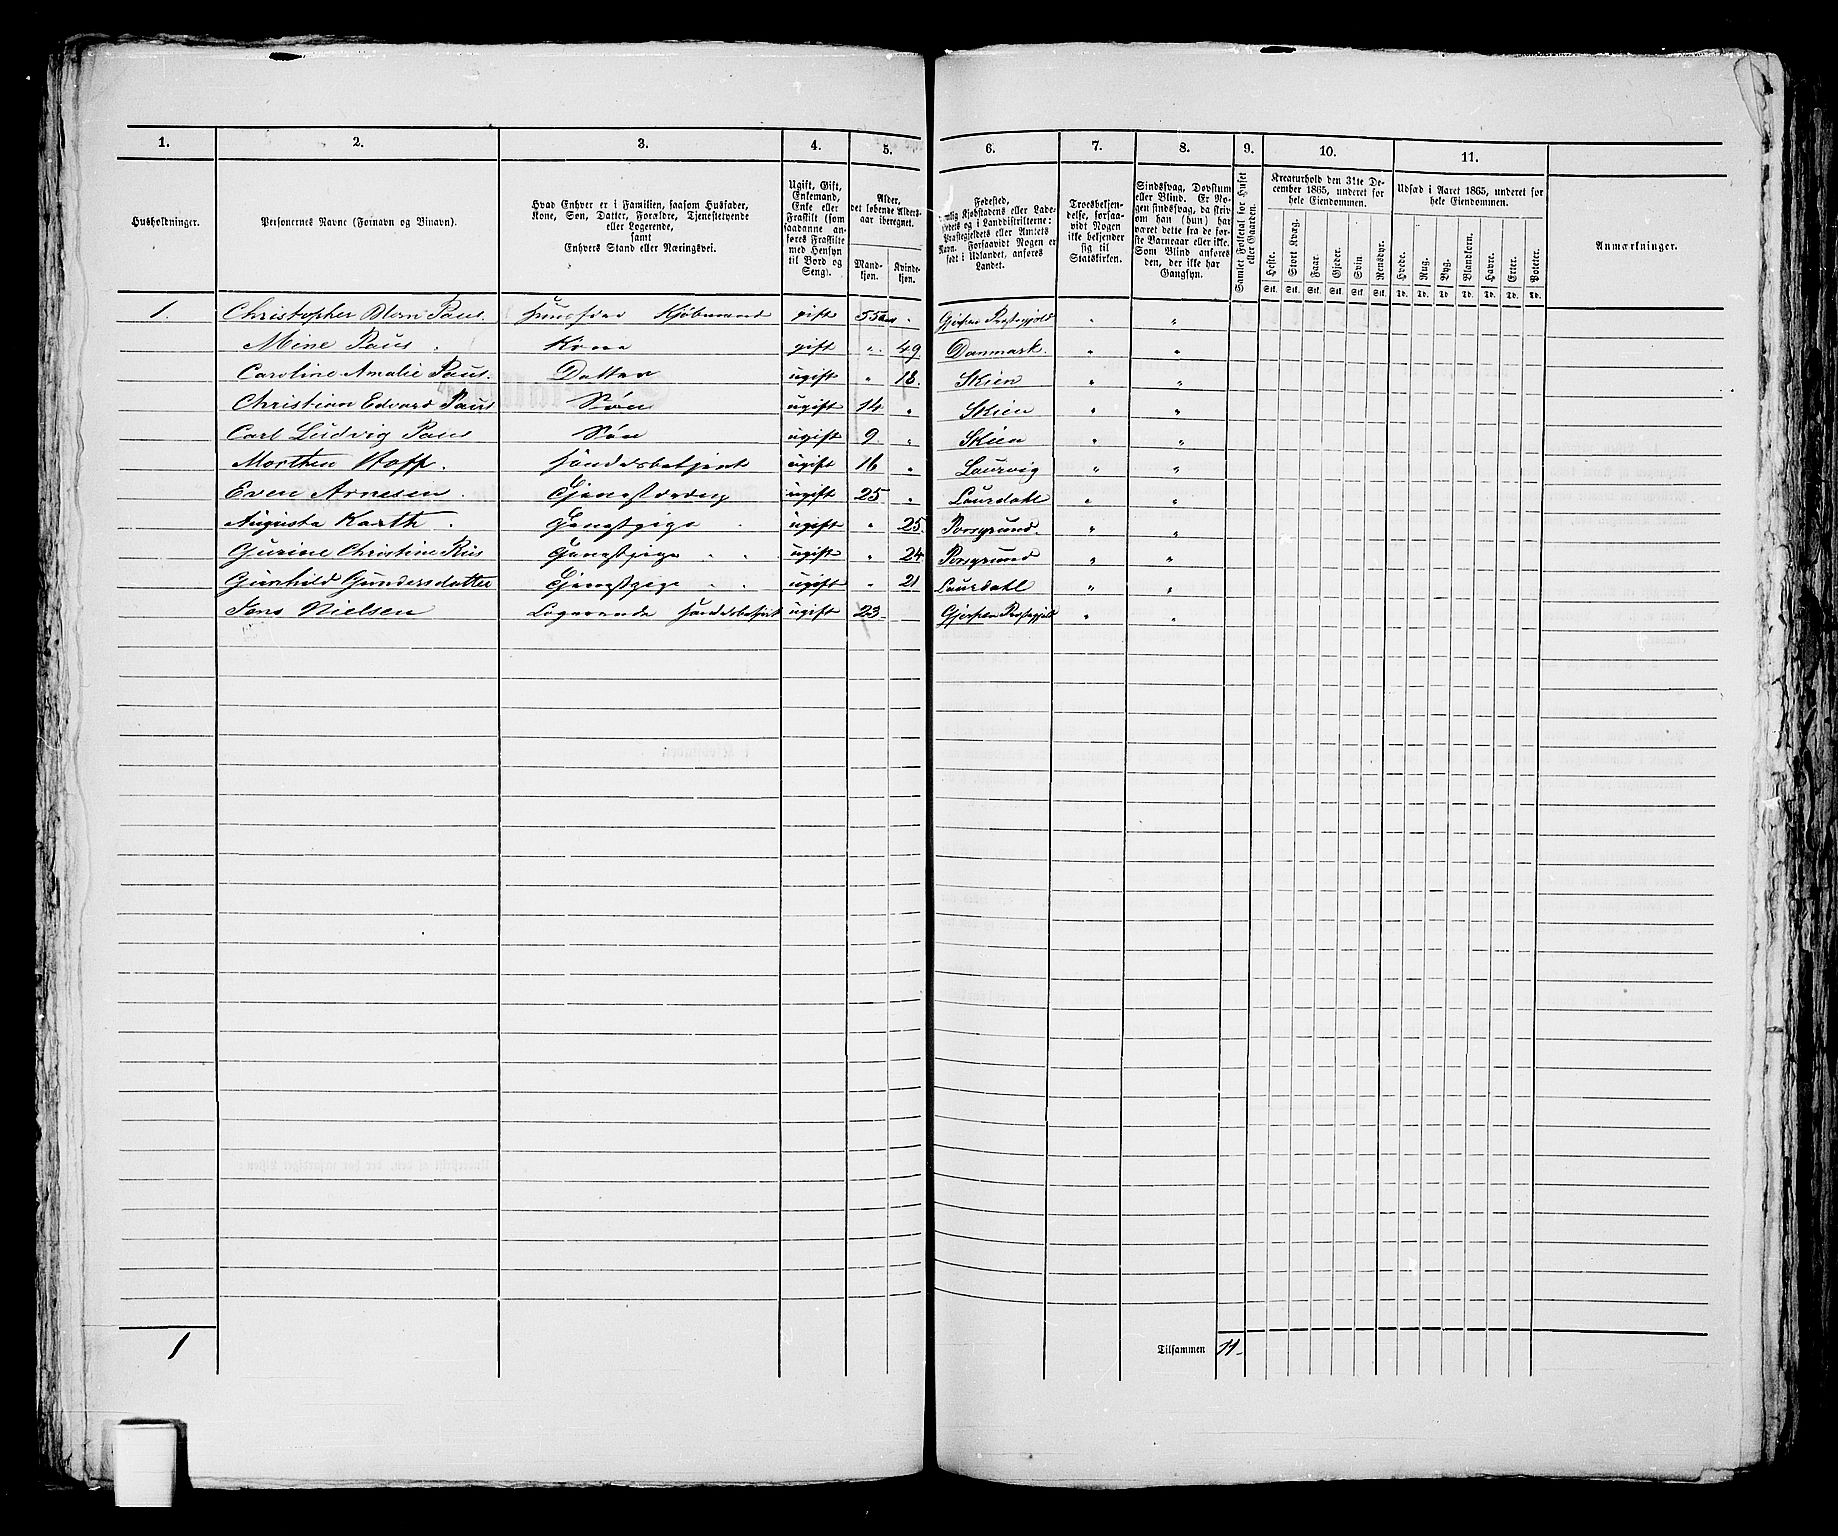 1. 2. 3. 4. 5. 6. 7. 8. 9. 10. 11.
Husholdninger.
Personernes Navne (Fornavn og Tilnavn).
Hvad Enhver er i Familien, saasom Husfader,
Kone, Søn, Datter, Forældre, Tjenestetyende
eller Logerende,
samt
Enhvers Stand eller Næringsvei.
Ugift, Gift,
Enkemand,
Enke eller
Fraskilt (som
saadanne an-
føres Fraskilte
med Hensyn
til Bord og
Seng).
Alder,
det løbende Alders-
aar iberegnet.
Mand-
kjøn.
Kvinde-
kjøn.
Fødested,
nemlig Kjøbstadens eller Lade-
stedets og i Landdistrikterne:
Præstegjeldets eller Amtets
Navn. Forsaavidt Nogen er
født i Udlandet, anføres
Landet.
Troesbekjen-
delse, forsaa-
vidt Nogen
ikke bekjender
sig til
Statskirken.
Sindssvag, Døvstum
eller Blind. Er No-
gen sindssvag, da skriv
om han (hun) har
været dette fra de før-
ste Barneaar eller ikke.
Som Blind anføres
den, der ikke har
Gangsyn.
Samlet Folketal for Huset
eller Gaarden.
Kreaturhold den 31te De-
cember 1865, underet for
hele Eiendommen.
Heste. Stort Kvæg. Faar. Gjeder. Svin. Rensdyr.
Stk. Stk. Stk. Stk. Stk. Stk.
Udsæd i Aaret 1865, underet for
hele Eiendommen.
Hvede. Rug. Byg. Blandkorn. Havre. Erter. Poteter.
Td. Td. Td. Td. Td. Td. Td.
Anmærkninger.
1. Christopher Blom Paus. Huusfader Kjøbmand gift 55 " Gjerpen Prestegjeld " "
Mine Paus. Kone gift " 49 Danmark. " "
Caroline Amalie Paus. Datter ugift " 18. Skien " "
Christian Edvard Paus Søn ugift 14 " Skien " "
Carl Ludvig Paus Søn ugift 9 " Skien " "
Morthen Hoff. Handelsbetjent ugift 16 " Laurvig " "
Even Arnesen. Tjenestedreng ugift 25 " Laurdahl " "
Augusta Karth. Tjenestpige ugift " 25. Porsgrund. " "
Gurine Christine Riis Tjenestpige ugift " 24 Porsgrund " "
Gunhild Gundersdatter Tjenestpige ugift " 21 Laurdahl " "
Jens Nielsen Logerende Handelsbetjent ugift 23 Gjerpen Prestegjeld " "
1 Tilsammen 11.